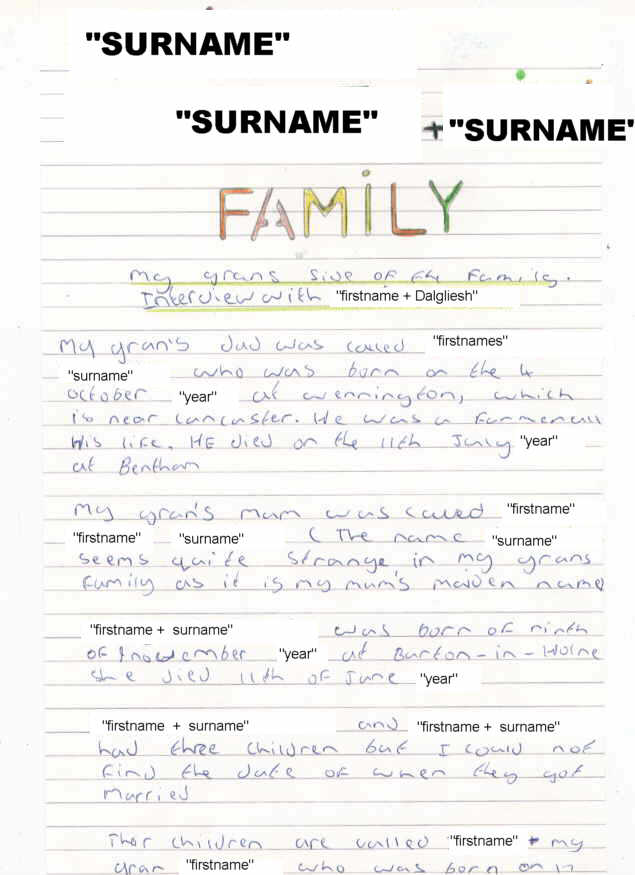 "SURNAME"
"SURNAME" + "SURNAME"
FAMiLY
My grans Side of the Family.
Interview with "firstname + Dalgliesh"
My gran's dad was called "firstnames"
"surname" who was born on the 4
October "year" at wennington, which
is near Lancaster. He was a Farmer all
his life. HE died on the 11th July "year"
at Bentham
My gran's mum was called "firstname"
"firstname" "surname" ( The name "surname"
seems quite strange in my grans
Family as it is my mum's maiden name
"firstname + surname" was born of ninth
of November "year" at Burton-in-Holne
She died 11th of June "year"
"firstname + surname" and "firstname + surname"
had three children but I could not
Find the date of when they got
Married
Ther children are called "firstname" + my
gran "firstname" who was born on 17